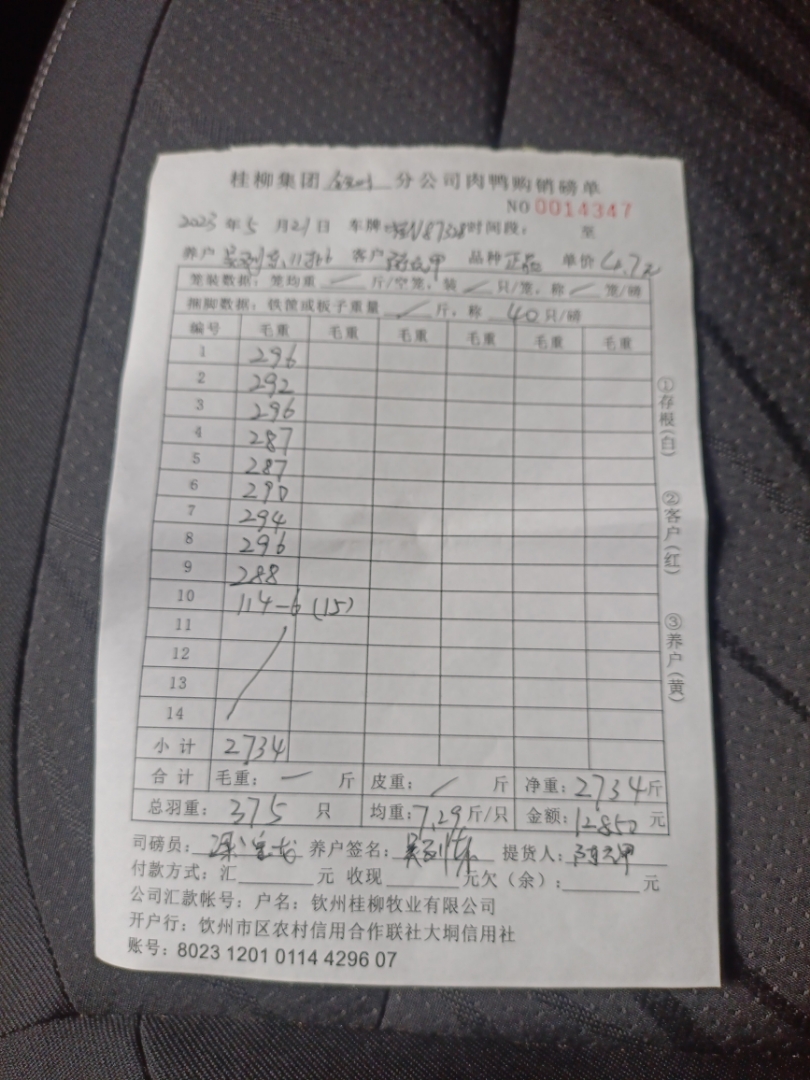 桂柳集团 分公司肉鸭购销磅单
NO 0014347
2023 年 5 月 21 日 车牌 N87328 时间段： 至
养户 客户 品种 正品 单价 4.7元
笼装数据：笼均重 / 斤/空笼，装 / 只/笼，称 / 笼/磅
捆脚数据：铁筐或板子重量 / 斤，称 40 只/磅
编号 毛重 毛重 毛重 毛重 毛重 毛重
1 296
2 292
3 296
4 287
5 287
6 290
7 294
8 296
9 288
10 114-6 (15)
11
12
13
14
小计 2734
合计 毛重： 一 斤 皮重： / 斤 净重：2734斤
总羽重： 375 只 均重：7.29斤/只 金额：12850 元
①存根（白） ②客户（红） ③养户（黄）
司磅员： 养户签名： 提货人：
付款方式：汇 元 收现 元欠（余）： 元
公司汇款帐号：户名：钦州桂柳牧业有限公司
开户行：钦州市区农村信用合作联社大垌信用社
账号：8023 1201 0114 4296 07